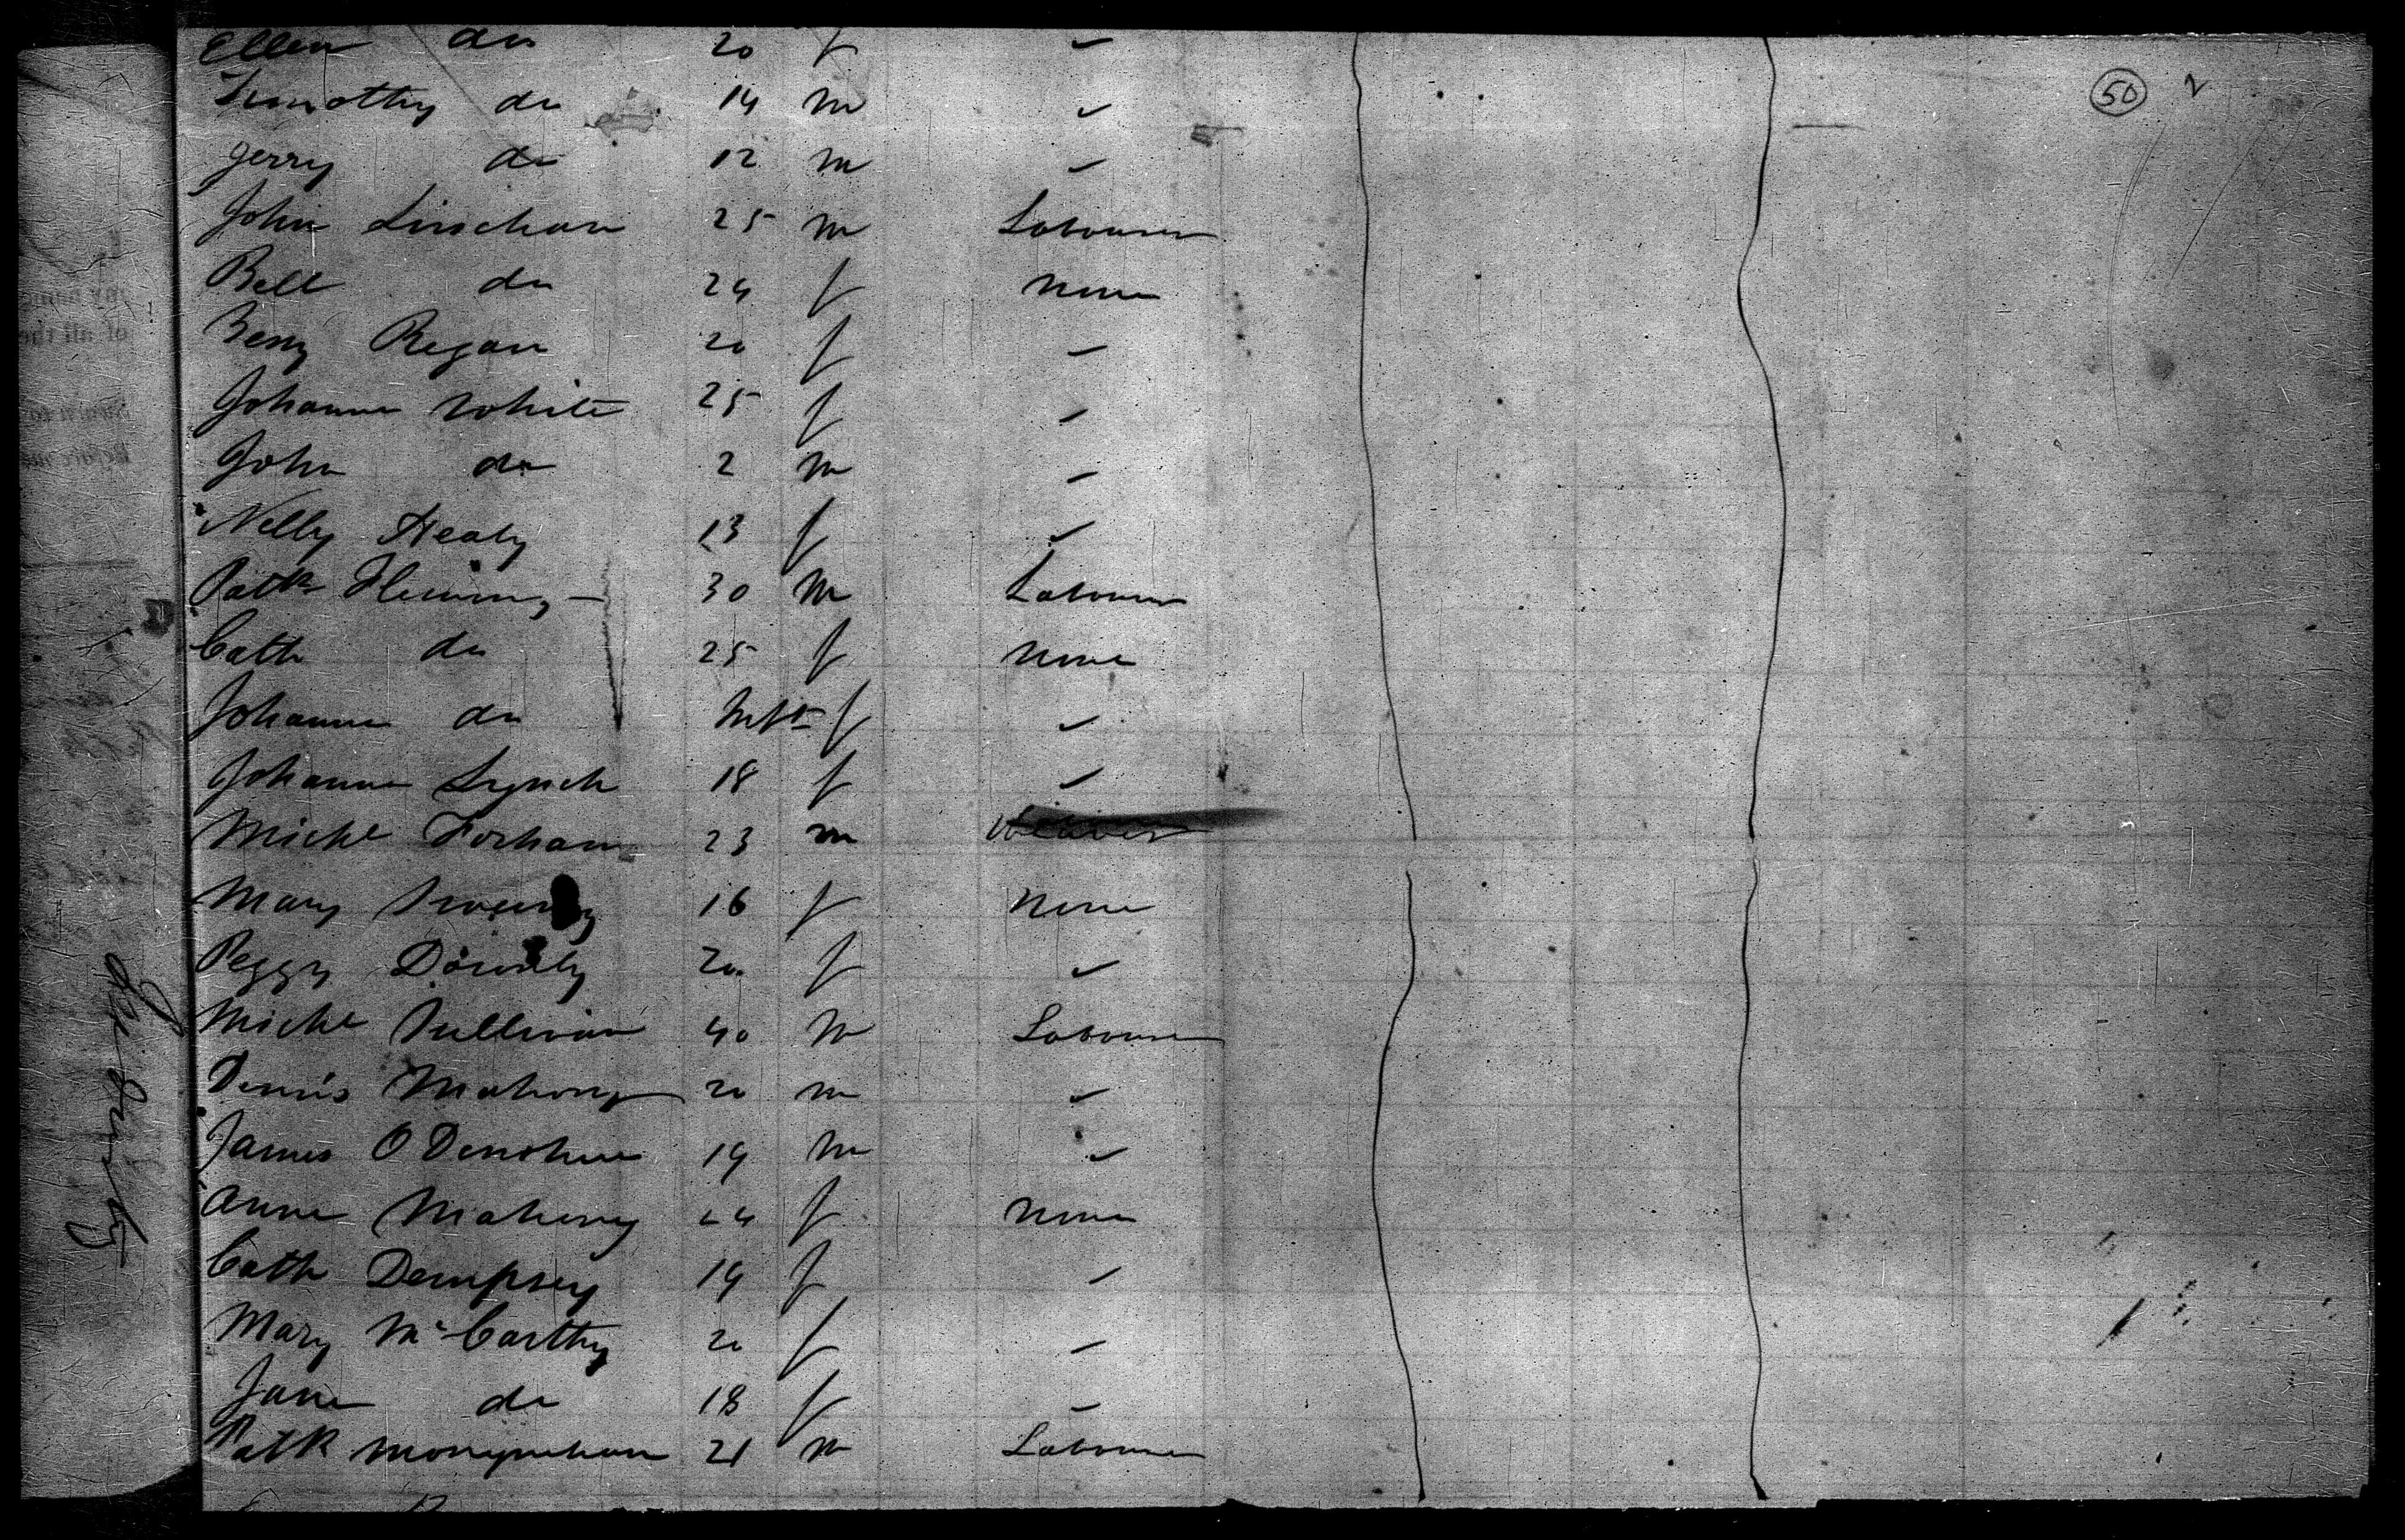 Ellen do 20 f ✓
50
Timothy do 14 m ✓
Jerry do 12 m ✓
John Linehan 25 m Labourer
Bell do 24 f None
Bessy Regan 20 f ✓
Johanna White 25 f ✓
John do 2 m ✓
Nelly Healy 13 f ✓
Patk Fleming 30 m Labourer
Cath do 25 f None
Johanna do Inft f ✓
Johanna Lynch 18 f ✓
Michl 23 m Weaver
Mary Sweeny 16 f None
Peggy 20 f ✓
Michl Sullivan 40 m Labourer
Dennis Mahony 20 m ✓
James O Donohue 19 m ✓
Anne Mahony 24 f None
Cath Dempsey 19 f ✓
Mary McCarthy 20 f ✓
Jane do 18 f ✓
Patk Moynehan 21 m Labourer